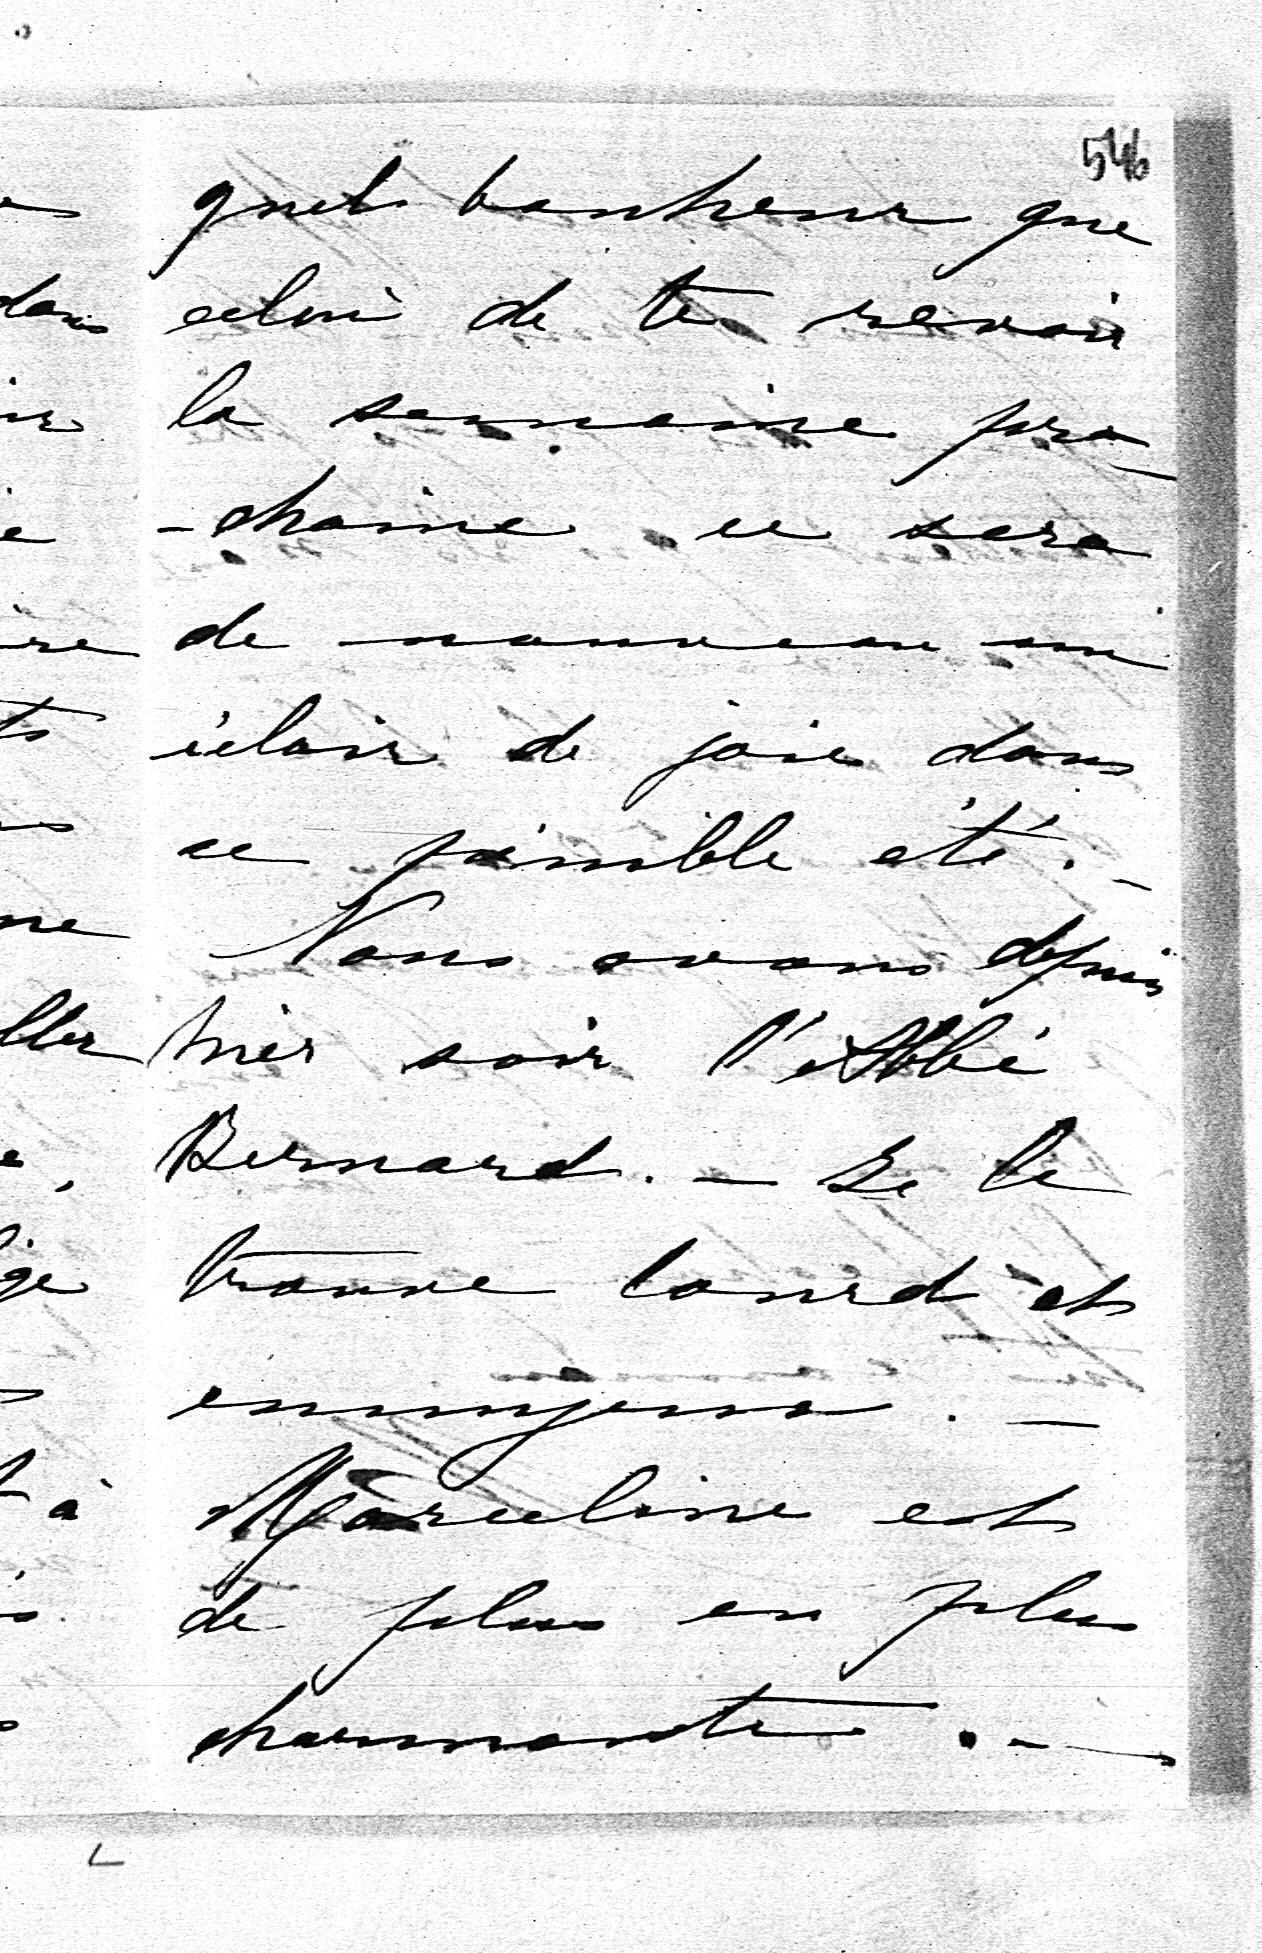 546
quel bonheur que
celui de te revoir
la semaine pro
-chaine ce sera
de nouveau un
éclair de joie dans
ce pénible été. -
Nous avons depuis
hier soir l'Abbé
Bernard. - Je le
trouve lourd et
ennuyeux. -
Marceline est
de plus en plus
charmante. -